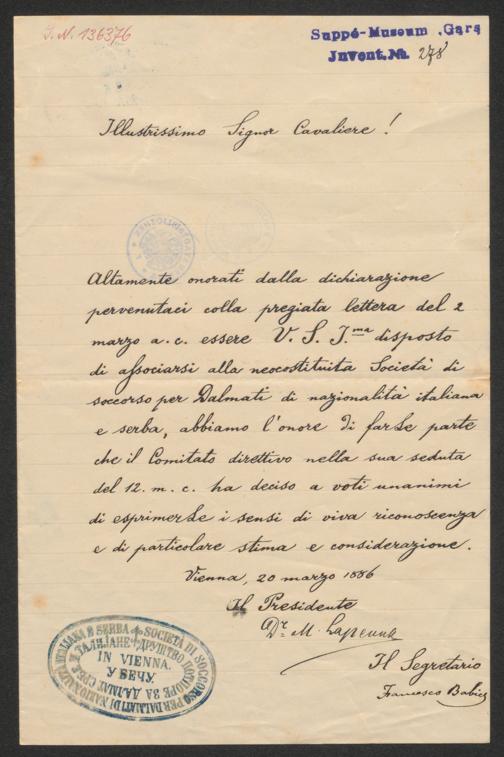 I.N. 136376
Suppé-Museum, Gars
Invent.No. 278
Illustrissimo Signor Cavaliere!
Altamente onorati dalla dichiarazione
pervenutaci colla pregiata lettera del 2
marzo a. c. essere V. S. I.ma disposto
di associarsi alla neocostituita Società di
soccorso per Dalmati di nazionalità italiana
e serba, abbiamo l'onore di farLe parte
che il Comitato direttivo nella sua seduta
del 12. m. c. ha deciso a voti unanimi
di esprimerLe i sensi di viva riconoscenza
e di particolare stima e considerazione.
Vienna, 20 marzo 1886
Il Presidente
Dr. M. Lapenna
Il Segretario
Francesco Babić
SOCIETÀ DI SOCCORSO PER DALMATI DI NAZIONALITÀ ITALIANA E SERBA
ДРУШТВО ПОТПОРЕ ЗА ДАЛМАТ. СРБЕ И ТАЛИЈАНЕ
IN VIENNA.
У БЕЧУ.